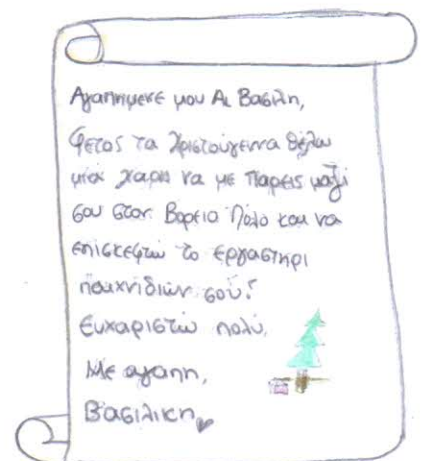 Αγαπημενε μου Αι Βασιλη,
Φετος τα Χριστούγεννα θέλω
μια χαρη να με παρεις μαζί
σου στον Βορειο Πόλο και να
επισκεφτώ το εργαστηρι
παιχνιδιών σου!
Ευχαριστώ πολύ,
Με αγαπη,
Βασιλικη